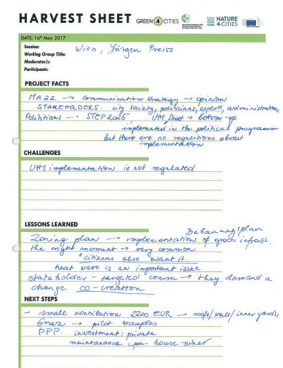 HARVEST SHEET GREEN 4 CITIES NATURE 4 CITIES
DATE: 16th May 2017
Session: Wien, Jürgen Preiss
Working Group Title:
Moderator/s:
Participants:
PROJECT FACTS
MA 22 → communication strategy → opinion
STAKEHOLDERS: city society, politicians, experts, administration,
Politicians → STEP 2025, UHI Strat → bottom-up
implemented in the political programm
but there are no regulations about
implementation
CHALLENGES
UHI implementation is not regulated
LESSONS LEARNED
Bebauungsplan
Zoning plan → implementation of green infrastr.
the right moment → very common
citizens also want it
heat wave is an important issue
stakeholder - targeted comm → they demand a
change co-creation
NEXT STEPS
- small contribution 2200 EUR → roofs/wall/inner yards
Graz → pilot examples
PPP: investment: private
maintanance: house owner